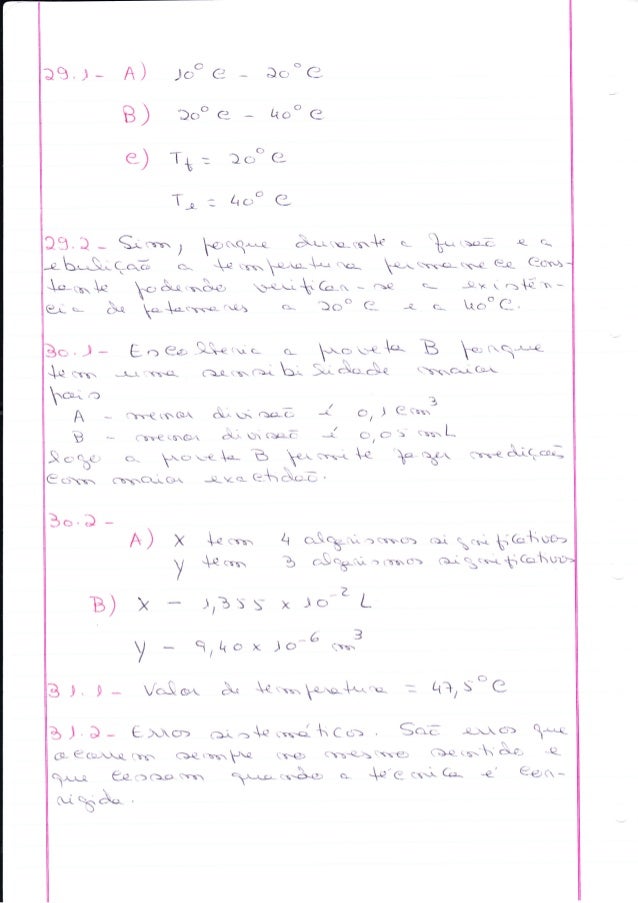 29.1- A) 10° C - 20° C
B) 20° C - 40° C
C) Tf = 20° C
Te = 40° C
29.2- Sim, porque durante a fusão e a
ebulição a temperatura permanece cons-
tante podendo verificar-se a existên-
cia de patamares a 20° C e a 40° C.
30.1- Escolheria a proveta B porque
tem uma sensibilidade maior
pois
A - menor divisão é 0,1 cm³
B - menor divisão é 0,05 mL
Logo a proveta B permite fazer medições
com maior exactidão.
30.2-
A) X tem 4 algarismos significativos
Y tem 3 algarismos significativos
B) X - 1,355 x 10⁻² L
Y - 9,40 x 10⁻⁶ cm³
31.1- Valor da temperatura = 47,5° C
31.2- Erros sistemáticos. São erros que
ocorrem sempre no mesmo sentido e
que cessam quando a técnica é cor-
rigida.